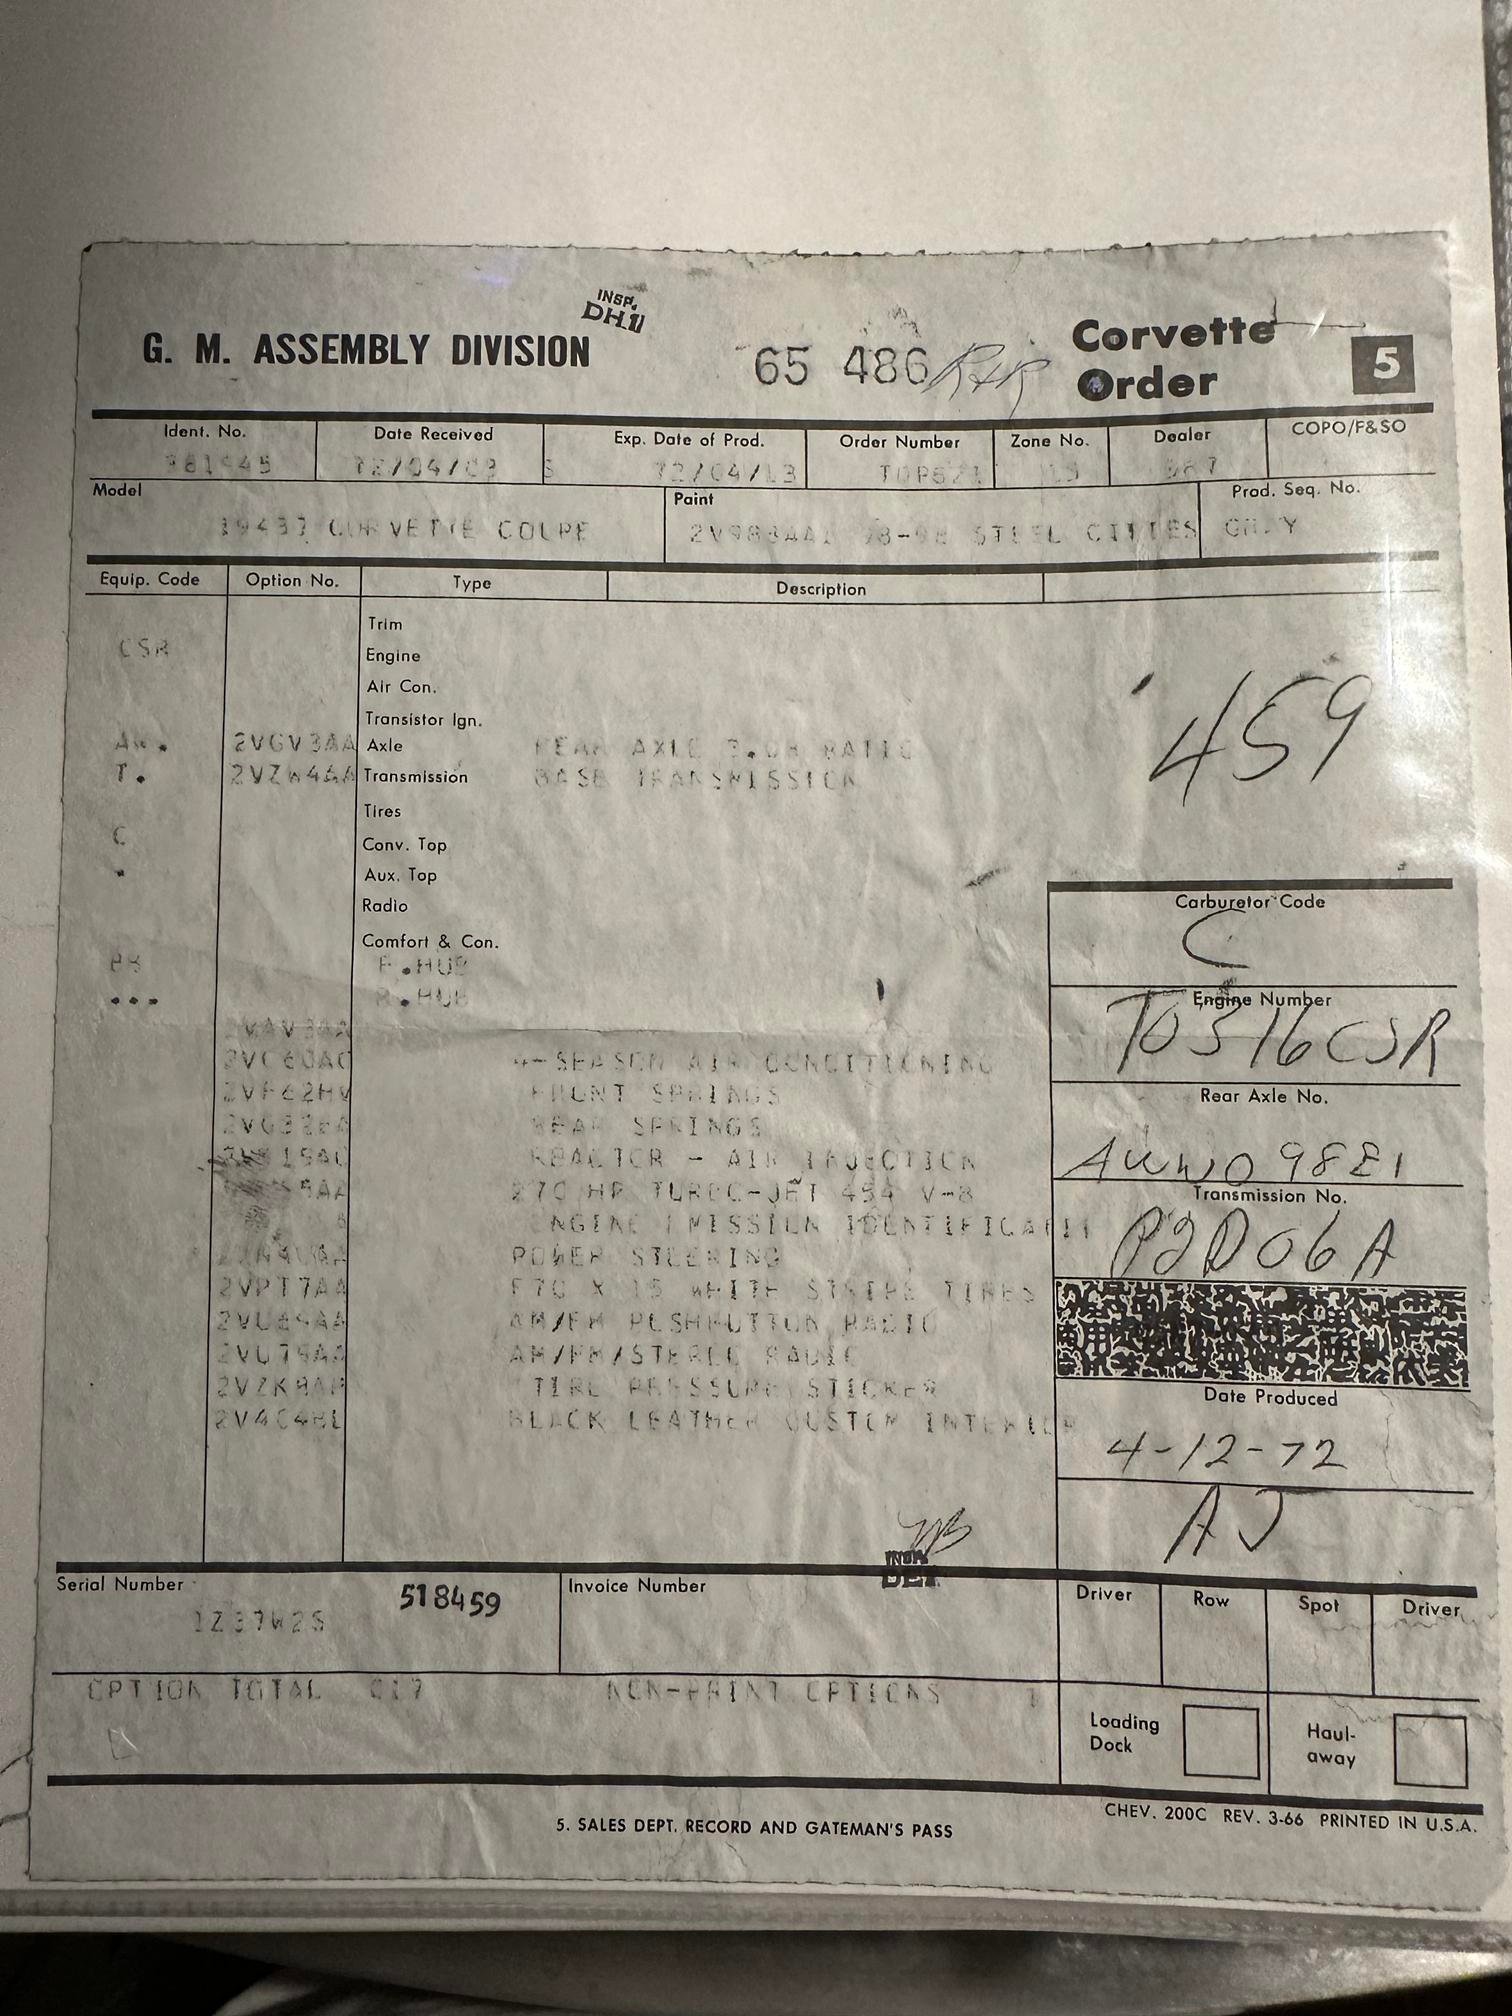 INSP.
DH.1
G. M. ASSEMBLY DIVISION
65 486
Corvette
Order
5
Ident. No. Date Received Exp. Date of Prod. Order Number Zone No. Dealer COPO/F&SO
72/04/03 S 72/04/13
Model Paint Prod. Seq. No.
19437 CORVETTE COUPE STEEL CITIES ONLY
Equip. Code Option No. Type Description
Trim
CSR Engine
Air Con.
Transistor Ign.
AW. 2VGV3AA Axle REAR AXLE 3.08 RATIO
T. 2VZW4AA Transmission BASE TRANSMISSION
Tires
C Conv. Top
Aux. Top
Radio
Comfort & Con.
F.HUB
... R.HUB
2VAV3AA
2VC60AC 4-SEASON AIR CONDITIONING
2VF62HV FRONT SPRINGS
REAR SPRINGS
REACTOR - AIR INJECTION
270 HP TURBO-JET 454 V-8
ENGINE EMISSION IDENTIFICATI
POWER STEERING
2VPT7AA F70 X 15 WHITE STRIPE TIRES
2VU69AA AM/FM PUSHBUTTON RADIO
2VU79AA AM/FM/STEREO RADIO
TIRE PRESSURE STICKER
2V404BL BLACK LEATHER CUSTOM INTERIOR
459
Carburetor Code
C
Engine Number
T0316CSR
Rear Axle No.
Transmission No.
P2D06A
Date Produced
4-12-72
AJ
INSP.
Serial Number 518459 Invoice Number Driver Row Spot Driver
1Z37W2S
OPTION TOTAL 017 NON-PRINT OPTIONS 1
Loading
Dock
Haul-
away
CHEV. 200C REV. 3-66 PRINTED IN U.S.A.
5. SALES DEPT. RECORD AND GATEMAN'S PASS